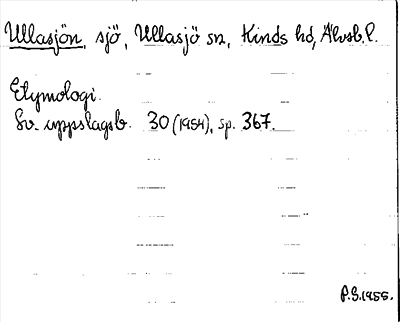 Ullasjön, sjö, Ullasjö sn, Kinds hd, Älvsb. l.
Etymologi.
Sv. uppslagsb. 30 (1954), sp. 367.
P.S. 1955.